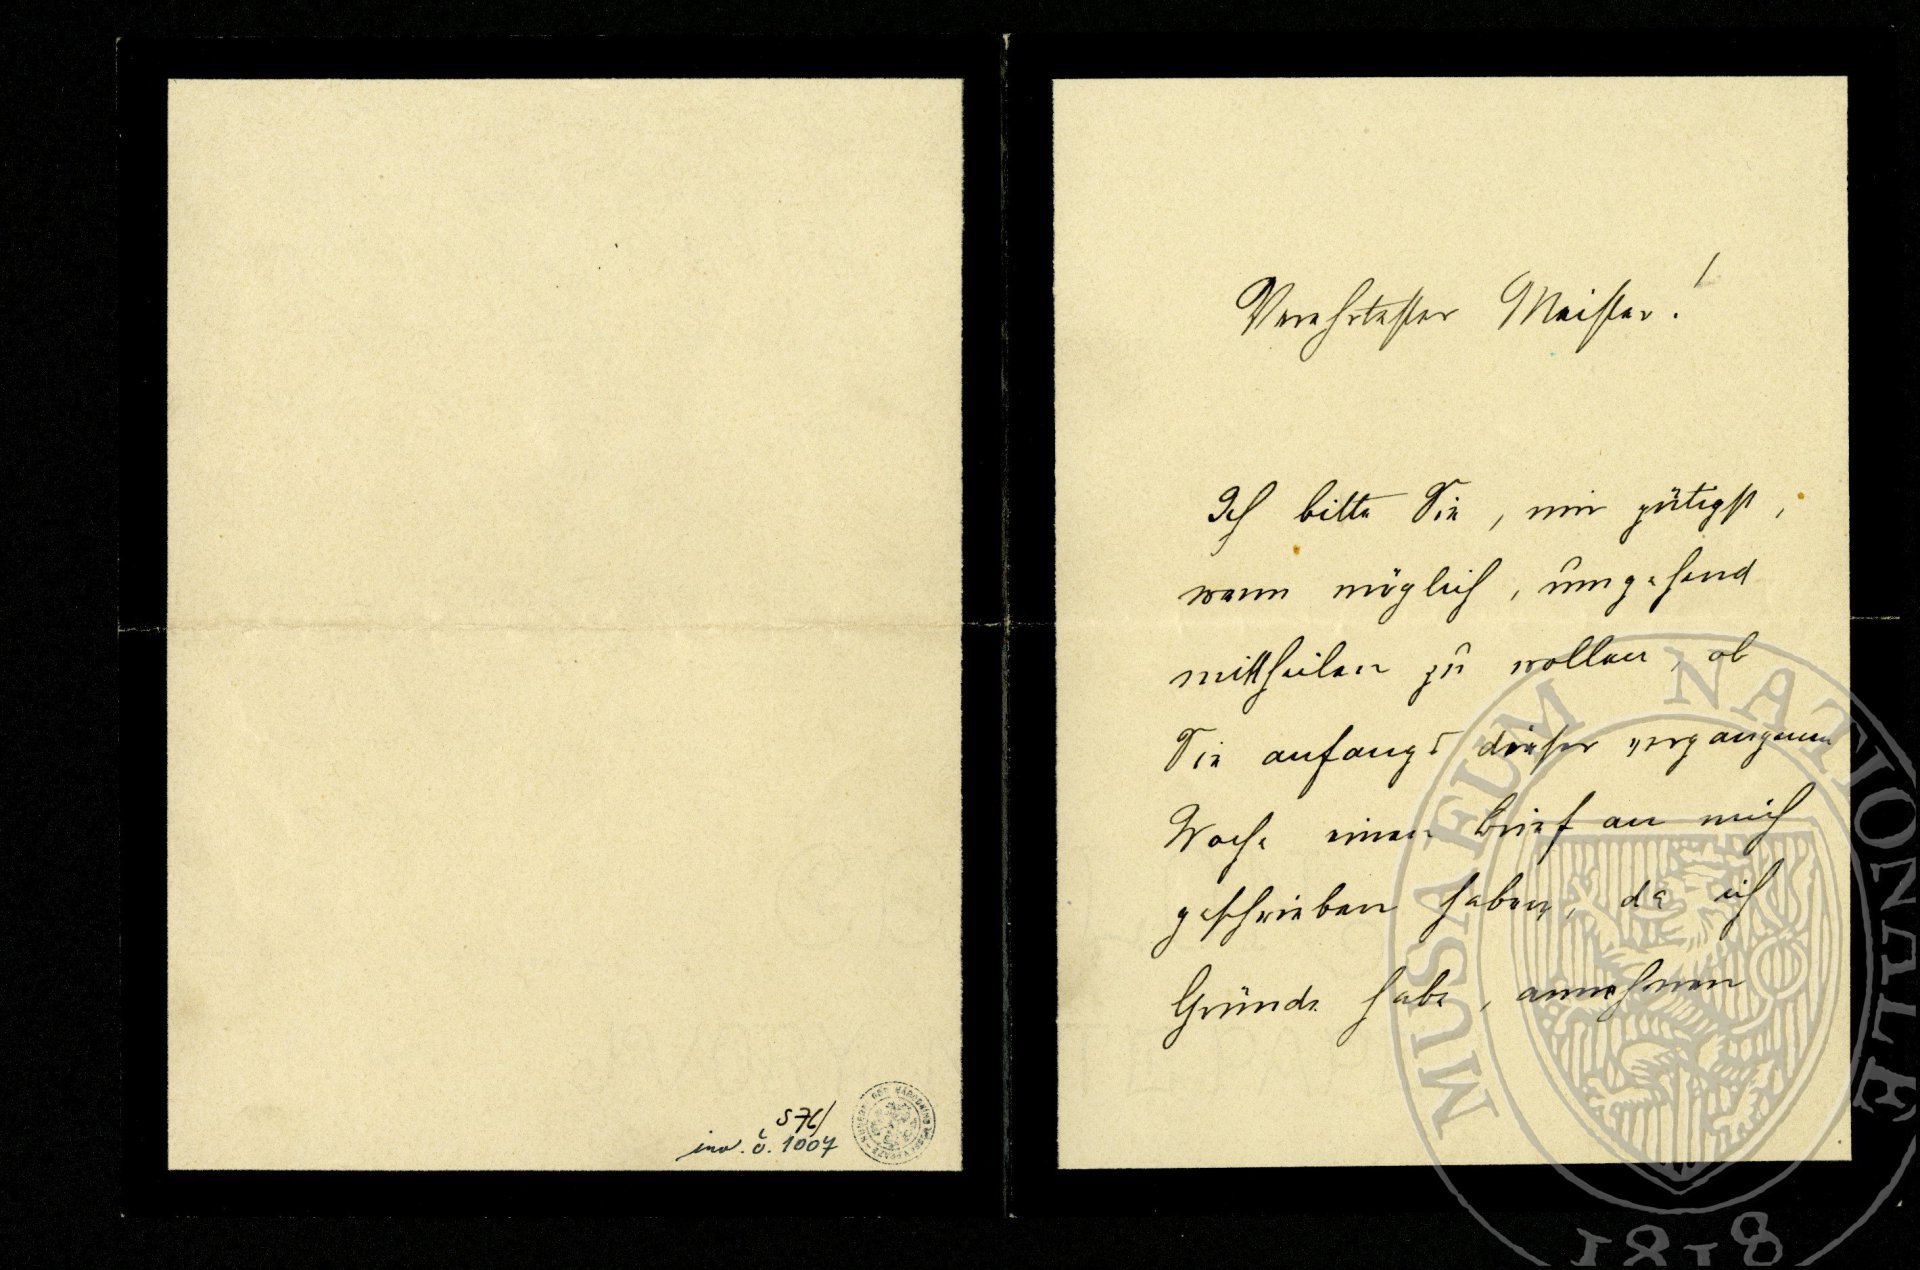 S 76/
inv. č. 1007
Verehrtester Meister!
Ich bitte Sie, mir gütigst,
wenn möglich, umgehend
mittheilen zu wollen, ob
Sie anfangs dieser vergangenen
Woche einen Brief an mich
geschrieben haben, da ich
Gründe habe, annehmen
MUSAEUM NATIONALE
1818